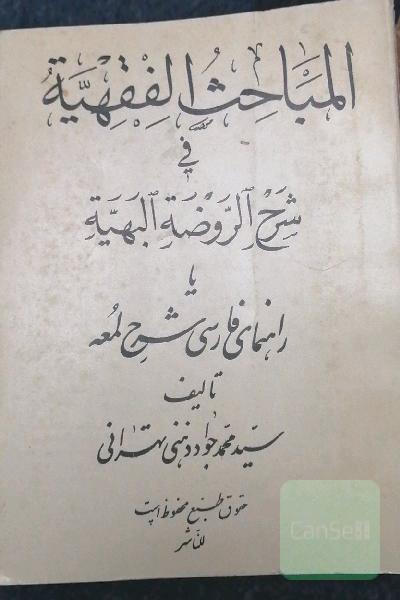 المَبَاحِثُ الفِقهِيَّةُ
في
شَرَحِ الرَّوضَةِ البَهَيَةِ
یا
راهنمای فارسی شرح لُمعه
تالیف
سیّد محمّد جواد ذهنی تهرانی
حقوق طبع محفوظ است
للناشر
CanSell